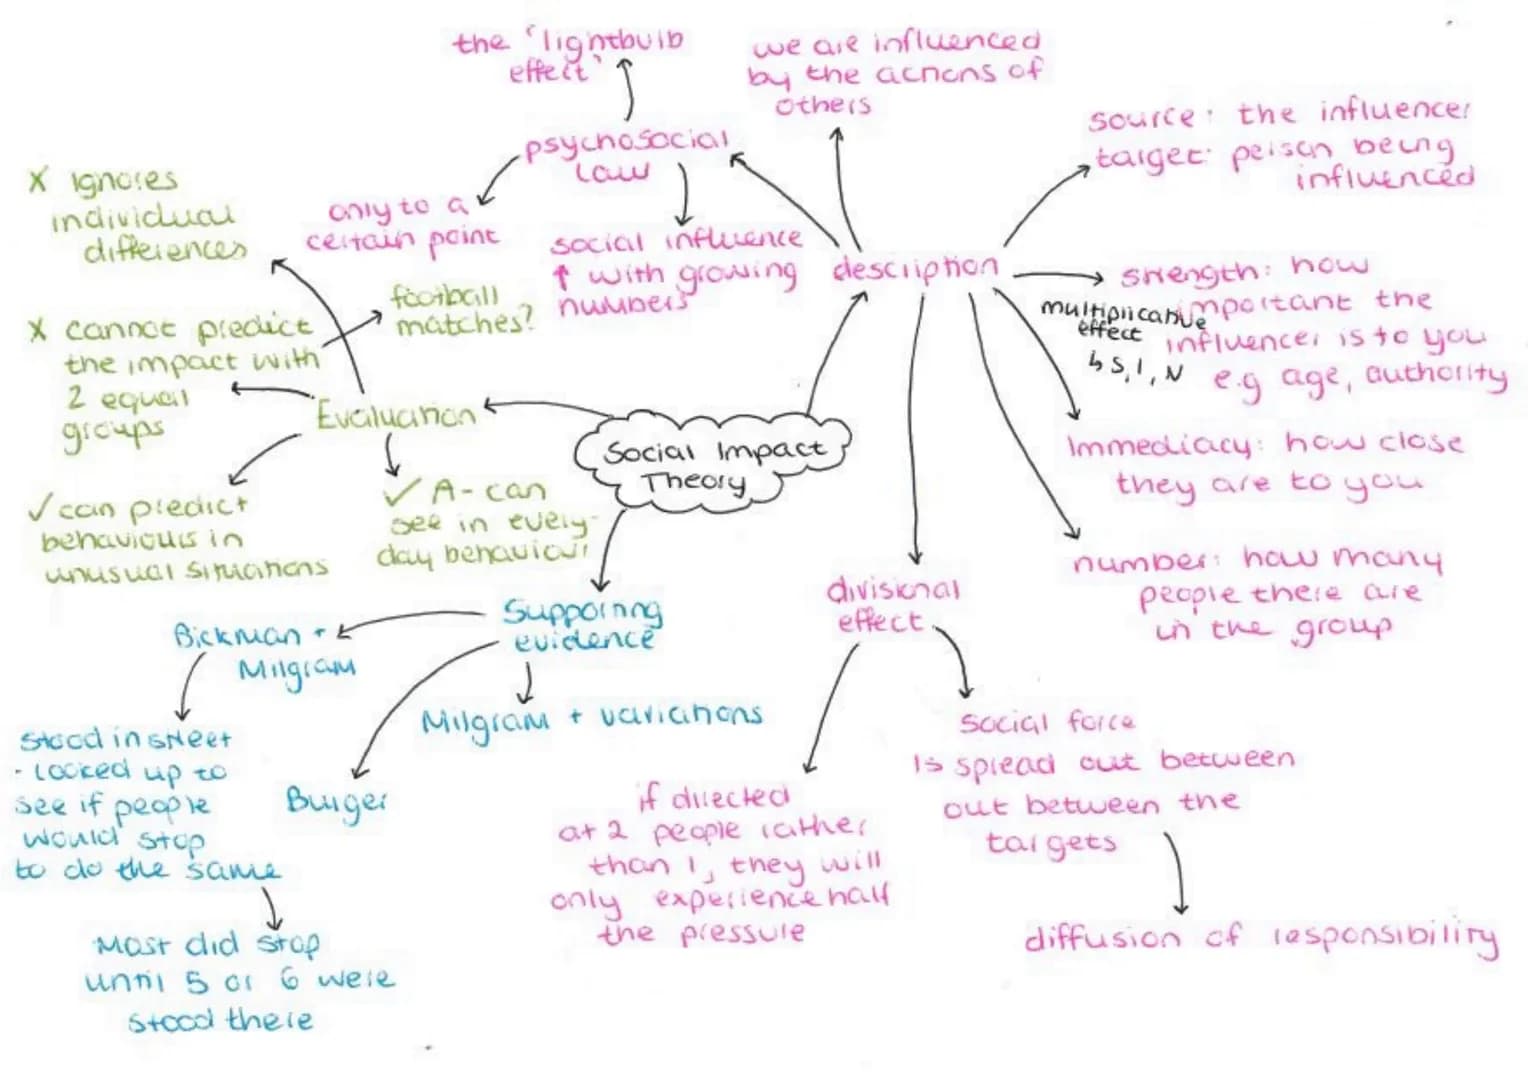 the "lightbulb
effect"
we are influenced
by the actions of
others
psychosocial
law
only to a
certain point
social influence
↑ with growing
numbers
description
source: the influencer
target: person being
influenced
strength: how
important the
influencer is to you
e.g age, authority
multiplicative
effect
↳ S, I, N
Immediacy: how close
they are to you
number: how many
people there are
in the group
X Ignores
individual
differences
X cannot predict
the impact with
2 equal
groups
football
matches?
Evaluation
✓ can predict
behaviours in
unusual situations
✓ A- can
see in every-
day behaviour
Social Impact
Theory
Supporting
evidence
Bickman +
Milgram
Stood in street
- Looked up to
see if people
would stop
to do the same
Most did stop
until 5 or 6 were
stood there
Burger
Milgram + variations
divisional
effect
if directed
at 2 people rather
than 1, they will
only experience half
the pressure
Social force
is spread out between
out between the
targets
diffusion of responsibility